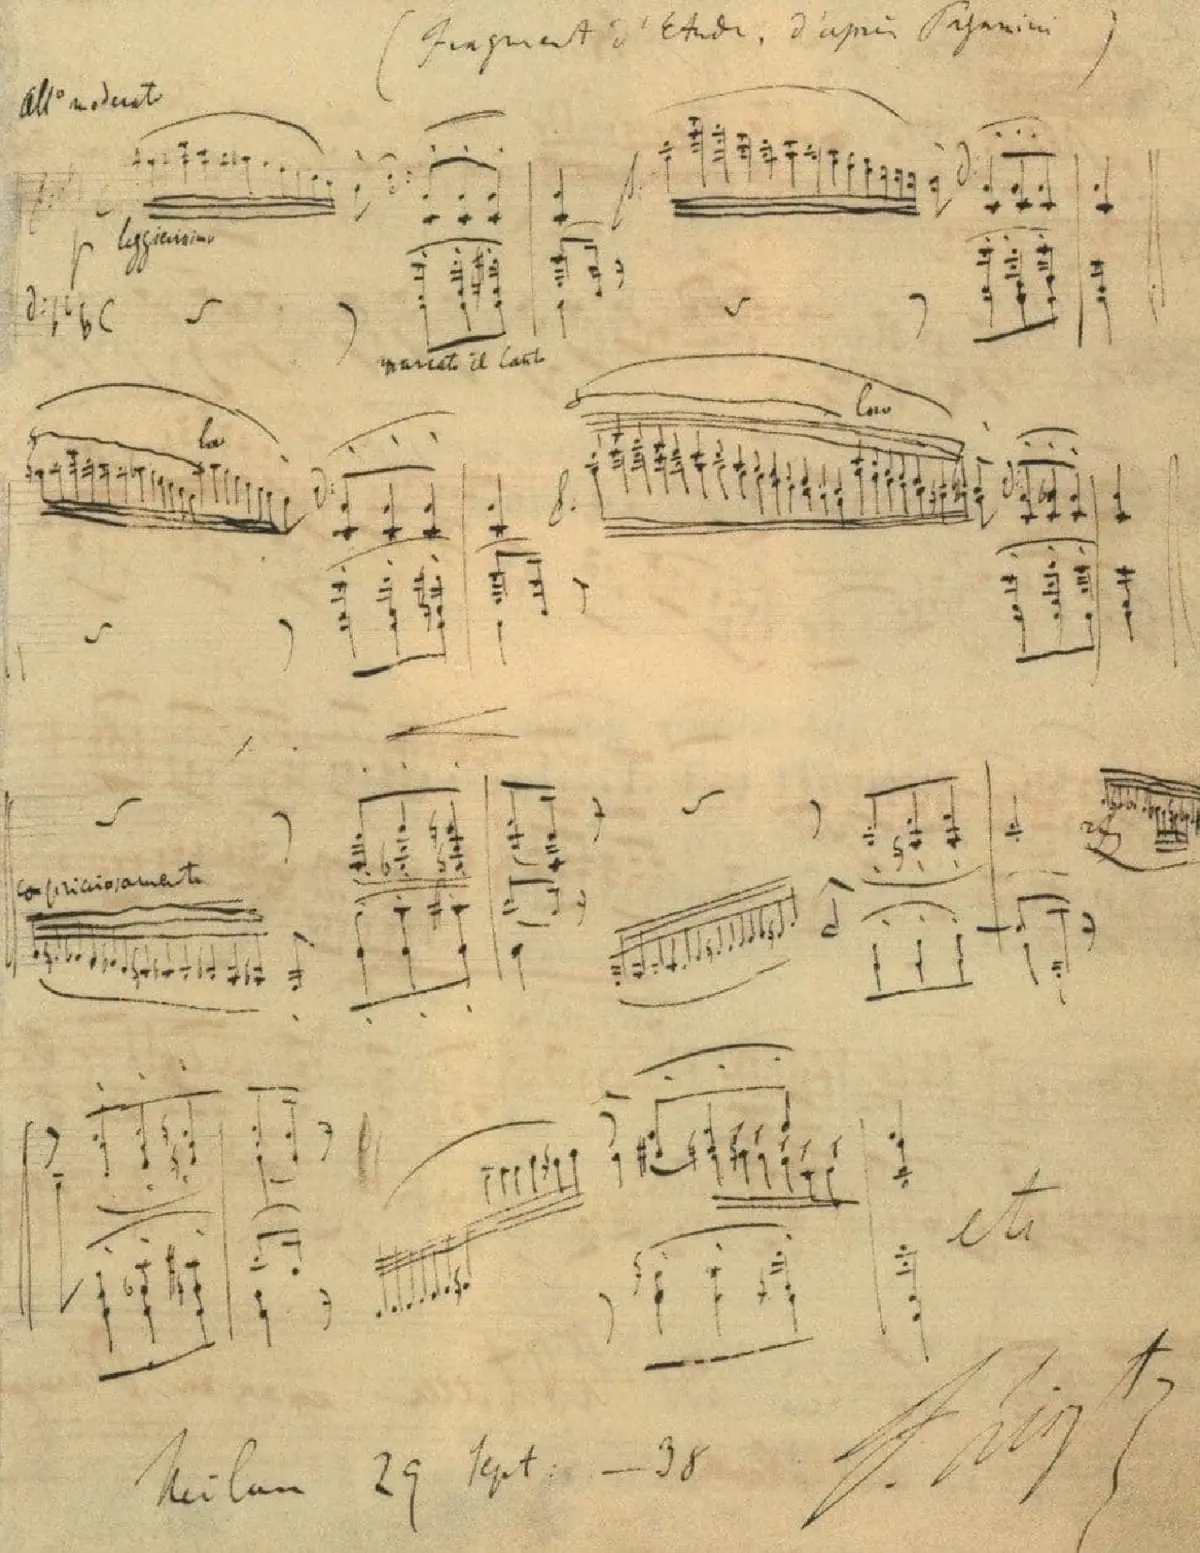 (Fragment d'Etude, d'après Paganini)
All° moderato
leggierissimo
marcato il Canto
loco
loco
capriciosamente
etc
Milan 29 Sept: — 38
F. Liszt